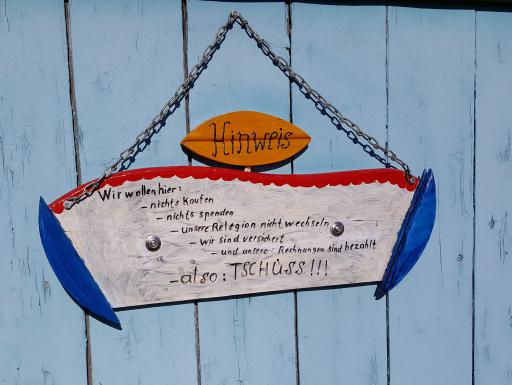 Hinweis
Wir wollen hier:
- nichts kaufen
- nichts spenden
- unsere Relegion nicht wechseln
- wir sind versichert
- und unsere Rechnungen sind bezahlt
- also: TSCHÜSS!!!